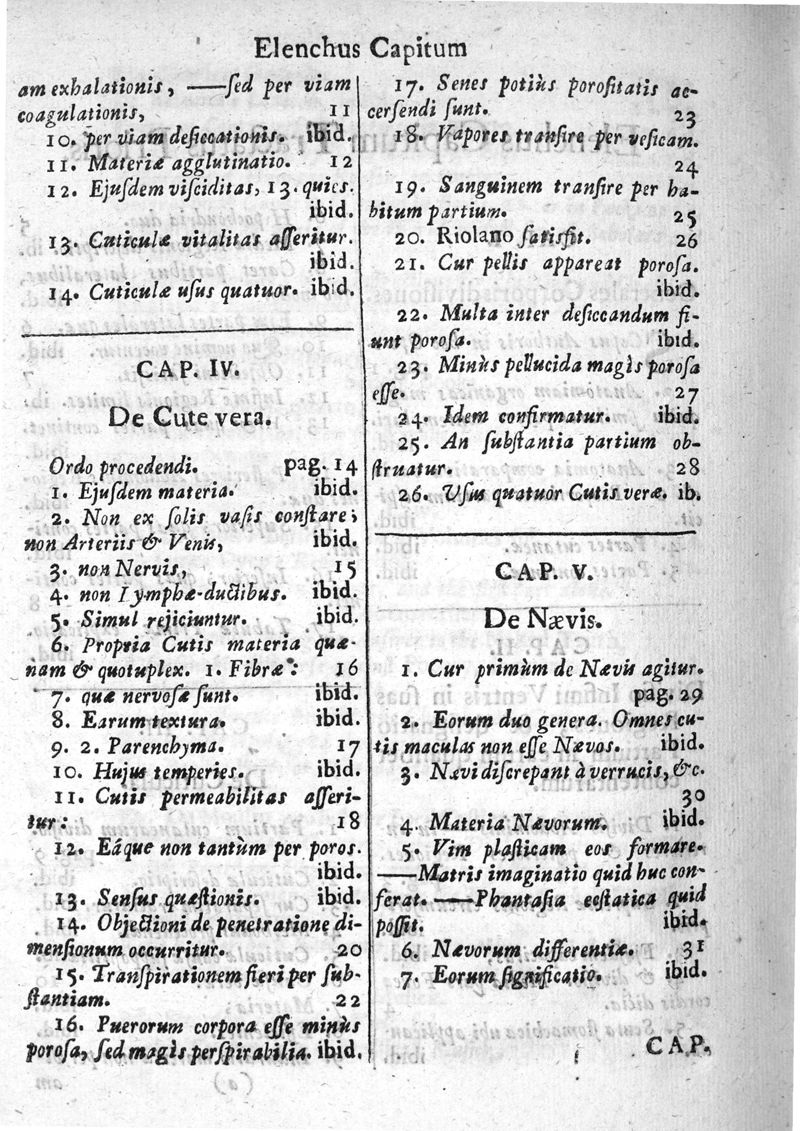 Elenchus Capitum
am exhalationis, ——ſed per viam
coagulationis, 11
10. per viam deſiccationis. ibid.
11. Materiæ agglutinatio. 12
12. Ejuſdem viſciditas, 13. quies.
ibid.
13. Cuticulæ vitalitas aſſeritur.
ibid.
14. Cuticulæ uſus quatuor. ibid.
CAP. IV.
De Cute vera.
Ordo procedendi. pag. 14
1. Ejuſdem materia. ibid.
2. Non ex ſolis vaſis conſtare;
non Arteriis & Venis, ibid.
3. non Nervis, 15
4. non Lymphæ-ductibus. ibid.
5. Simul rejiciuntur. ibid.
6. Propria Cutis materia quæ-
nam & quotuplex. 1. Fibræ: 16
7. quæ nervoſæ ſunt. ibid.
8. Earum textura. ibid.
9. 2. Parenchyma. 17
10. Hujus temperies. ibid.
11. Cutis permeabilitas aſſeri-
tur: 18
12. Eáque non tantùm per poros.
ibid.
13. Senſus quæſtionis. ibid.
14. Objectioni de penetratione di-
menſionum occurritur. 20
15. Tranſpirationem fieri per ſub-
ſtantiam. 22
16. Puerorum corpora eſſe minùs
poroſa, ſed magìs perſpirabilia. ibid.
17. Senes potiùs poroſitatis ac-
cerſendi ſunt. 23
18. Vapores tranſire per veſicam.
24
19. Sanguinem tranſire per ha-
bitum partium. 25
20. Riolano ſatisfit. 26
21. Cur pellis appareat poroſa.
ibid.
22. Multa inter deſiccandum fi-
unt poroſa. ibid.
23. Minùs pellucida magìs poroſa
eſſe. 27
24. Idem confirmatur. ibid.
25. An ſubſtantia partium ob-
ſtruatur. 28
26. Uſus quatuor Cutis veræ. ib.
CAP. V.
De Nævis.
1. Cur primùm de Nævis agitur.
pag. 29
2. Eorum duo genera. Omnes cu-
tis maculas non eſſe Nævos. ibid.
3. Nævi diſcrepant à verrucis, &c.
30
4. Materia Nævorum. ibid.
5. Vim plaſticam eos formare.
——Matris imaginatio quid huc con-
ferat. ——Phantaſia ecſtatica quid
poſſit. ibid.
6. Nævorum differentiæ. 31
7. Eorum ſignificatio. ibid.
CAP.